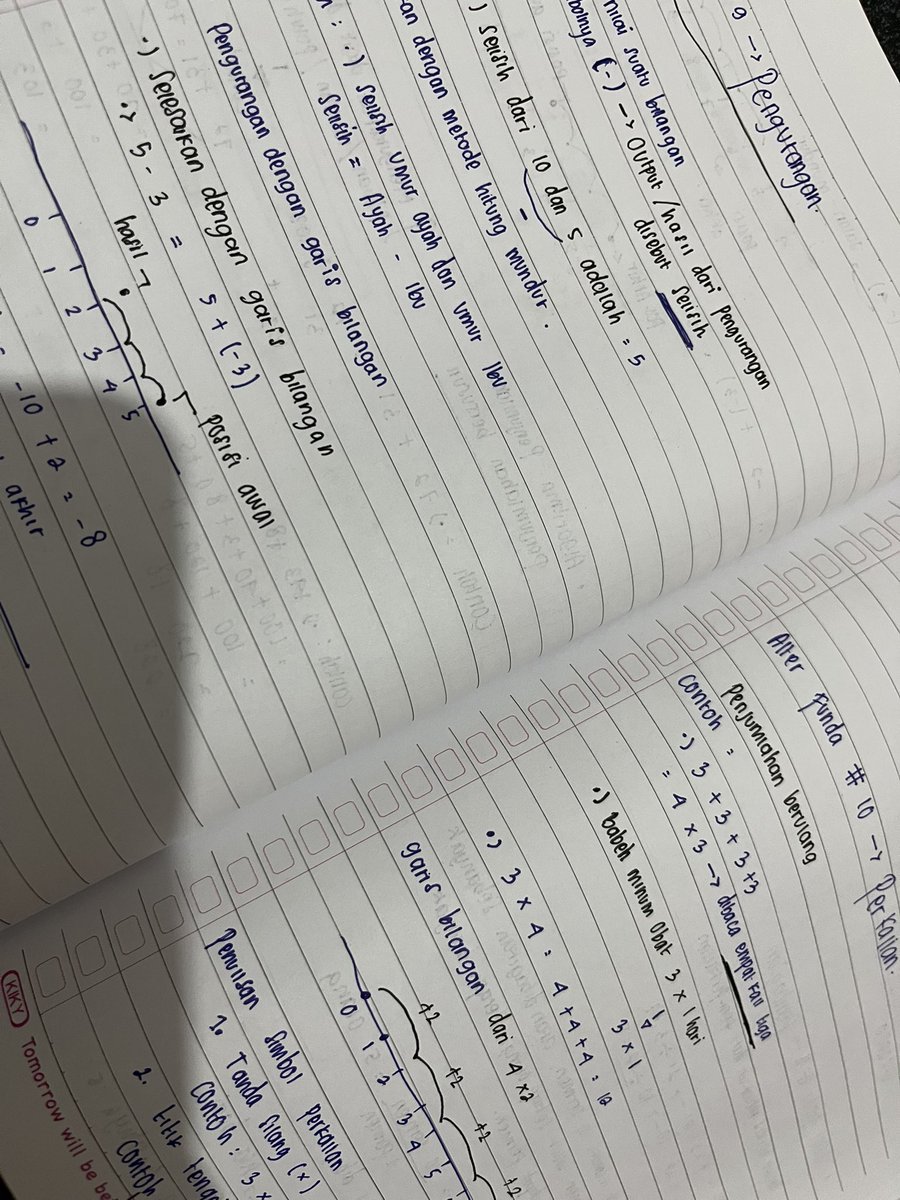 9 → Pengurangan.
nilai suatu bilangan
bolnya (-) → Output / hasil dari pengurangan
disebut selisih.
) selisih dari 10 dan 5 adallah = 5
an dengan metode hitung mundur.
•) selisih umur ayah dan umur Ibu
selisih = Ayah - Ibu
Pengurangan dengan garis bilangan
•) selesaikan dengan garis bilangan
•> 5 - 3 = 5 + (-3)
hasil
posisi awal
0 1 2 3 4 5
-10 + 2 = -8
akhir
Alter Funda # 10 → Perkalian.
Penjumlahan berulang
Contoh =
•) 3 + 3 + 3 + 3
= 4 x 3 → dibaca empat kali tiga
•) Babeh minum Obat 3 x 1 hari
3 x 1
•) 3 x 4 = 4 + 4 + 4 = 12
garis bilangan dari 4 x 2
+2 +2 +2 +2
0 1 2 3 4 5
Penulisan simbol perkalian
1. Tanda silang (x)
Contoh : 3 x
2. titik tenga
Contoh
KIKY Tomorrow will be be